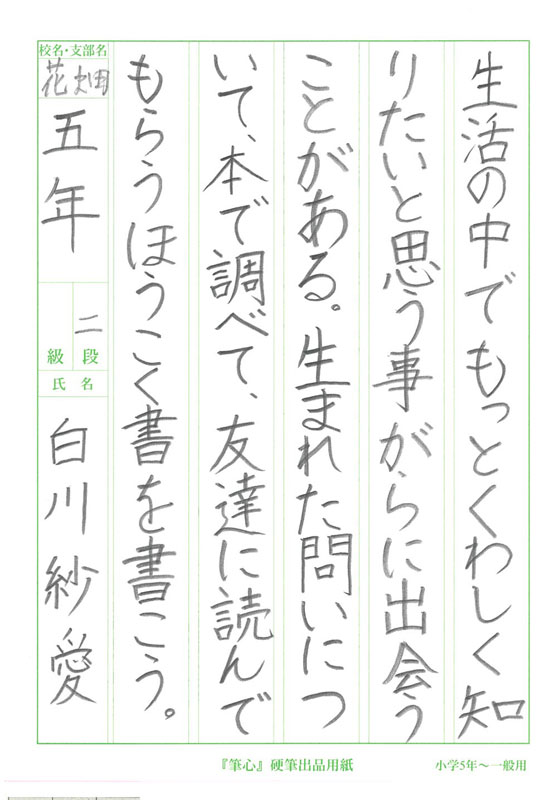 生活の中でもっとくわしく知
りたいと思う事がらに出会う
ことがある。生まれた問いにつ
いて、本で調べて、友達に読んで
もらうほうこく書を書こう。
校名・支部名
花畑
五年
二
級
段
氏名
白川紗愛
『筆心』硬筆出品用紙
小学5年〜一般用